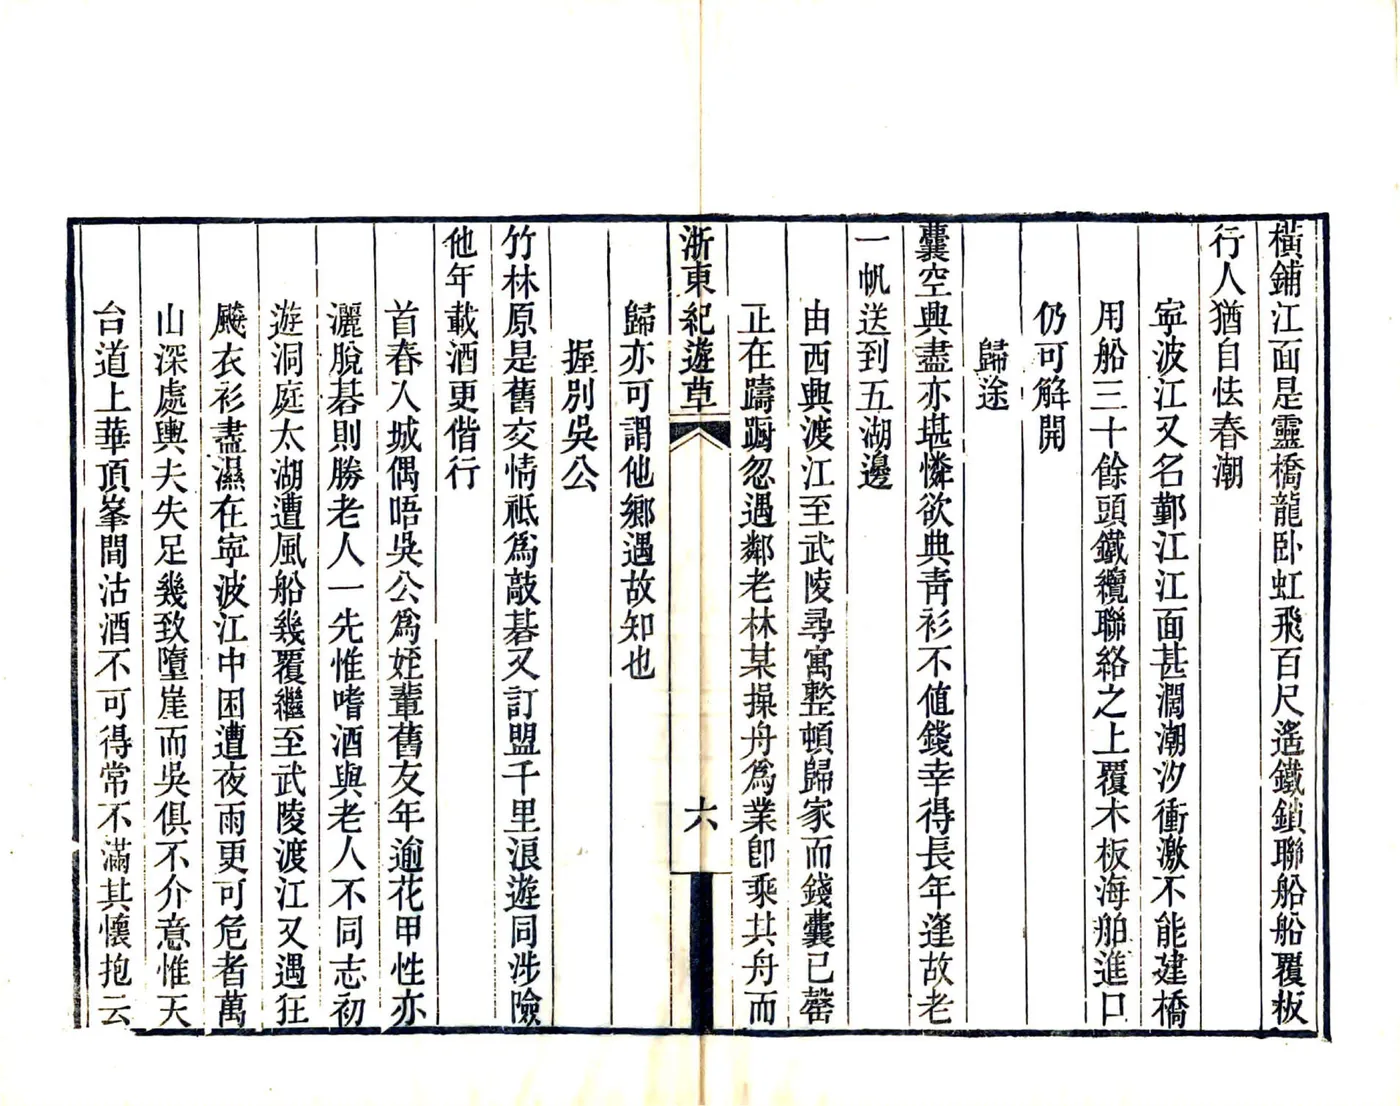 橫鋪江面是靈橋龍卧虹飛百尺遙鐵鎖聯船船覆板
行人猶自怯春潮
寧波江又名鄞江江面甚濶潮汐衝激不能建橋
用船三十餘頭鐵纜聯絡之上覆木板海舶進口
仍可解開
歸途
囊空興盡亦堪憐欲典靑衫不值錢幸得長年逢故老
一帆送到五湖邊
由西興渡江至武陵尋寓整頓歸家而錢囊已罄
正在躊躕忽遇鄰老林某操舟爲業卽乘其舟而
浙東紀遊草
六
歸亦可謂他鄉遇故知也
握別吳公
竹林原是舊交情祗爲敲碁又訂盟千里浪遊同涉險
他年載酒更偕行
首春入城偶唔吳公爲姪輩舊友年逾花甲性亦
灑脫碁則勝老人一先惟嗜酒與老人不同志初
遊洞庭太湖遭風船幾覆繼至武陵渡江又遇狂
颷衣衫盡濕在寧波江中困遭夜雨更可危者萬
山深處輿夫失足幾致墮崖而吳俱不介意惟天
台道上華頂峯間沽酒不可得常不滿其懷抱云